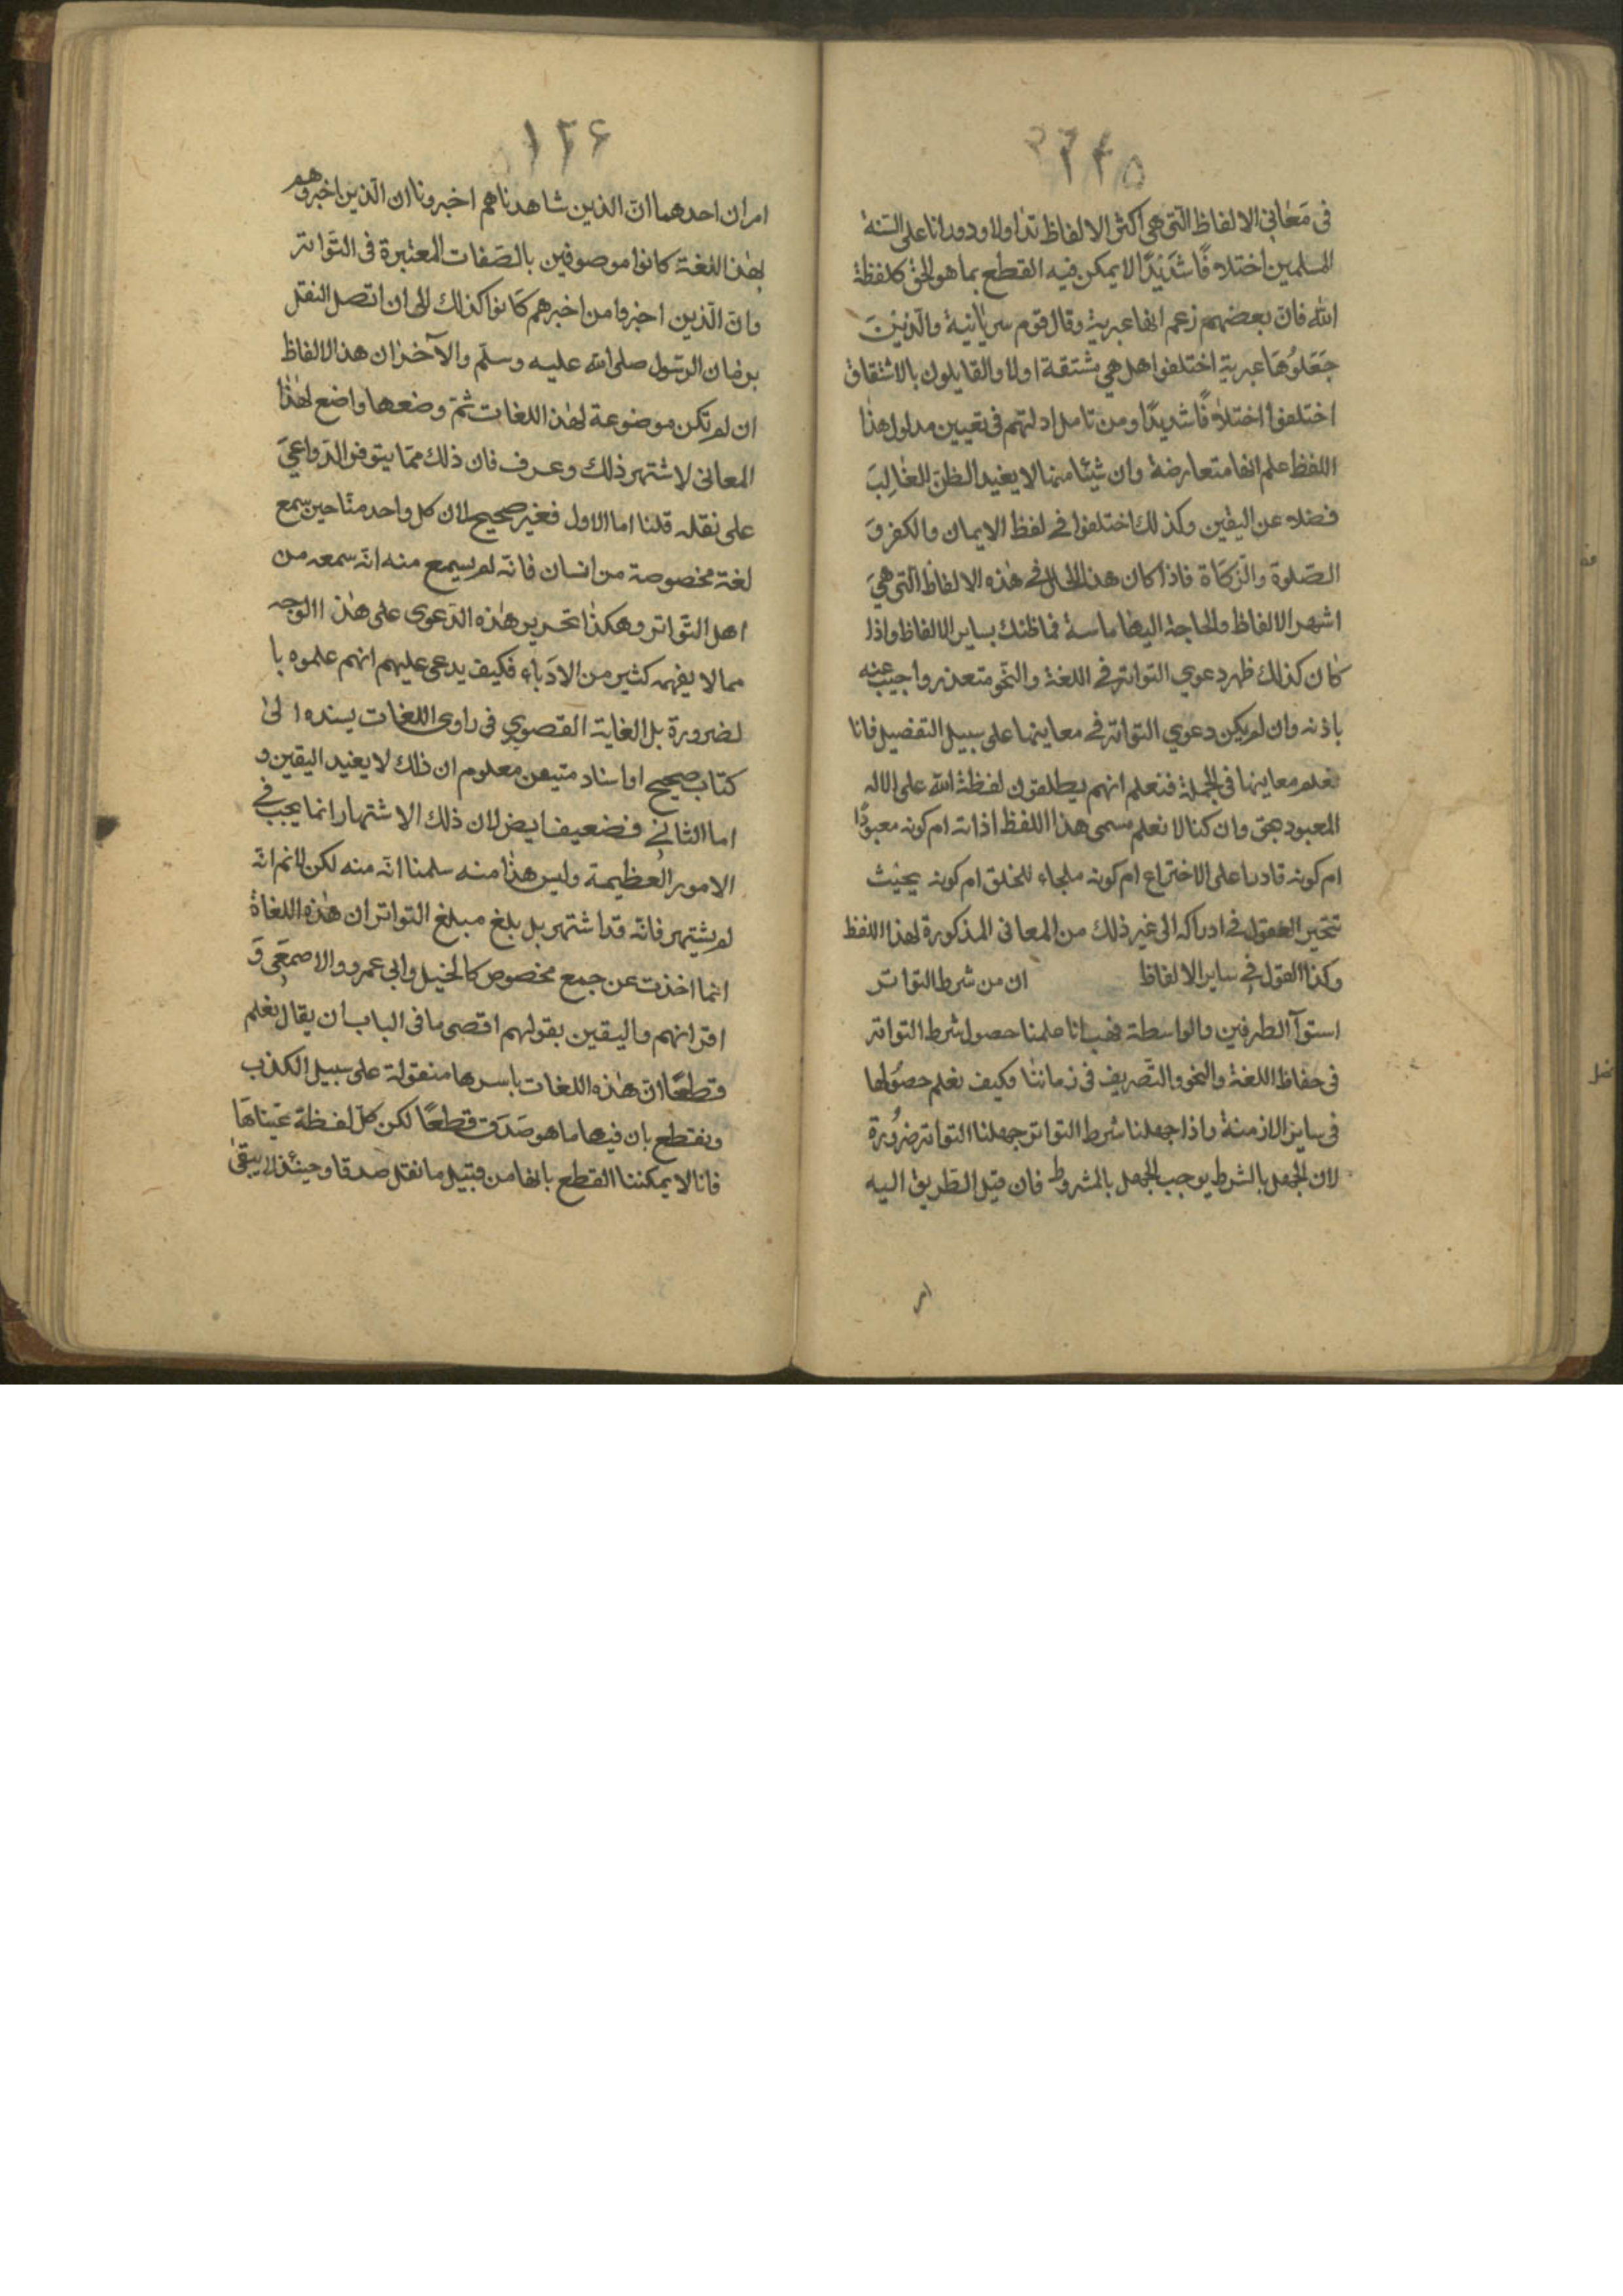 ١٢٥
فى مَعٰانى الالفاظ الّتى هى اكثر الالفاظ تداولا ودورانا على السنة
المسلمين اختلافًا شَدِيْدًا لا يمكن فيه القطع بما هو الحق كلفظة
الله فان بعضهم زعم انها عبرية وقال قوم سريانية والّذِيْنَ
جَعَلُوْهَا عبرية اختلفوا هل هى مشتقة اولا والقايلون بالاشتقاق
اختلفوا اختلافًا شديدًا ومن تامل ادلتهم فى تعيين مدلول هذا
اللفظ علم انها متعارضة وان شيئا منها لا يفيد الظن الغٰالِبَ
فضلا عن اليقين وكذلك اختلفوا فى لفظ الايمان والكفر وَ
الصّلوة والزّكاة فاذا كان هذا الحال فى هٰذه الالفاظ الّتى هىَ
اشهر الالفاظ والحاجة اليها ماسة فما ظنك بساير الالفاظ واذا
كٰان كذلك ظهر دعوي التواتر فى اللغة والنّحو متعذر واجيب عنه
بانه وان لم يكن دعوي التواتر فى معاينها على سبيل التفصيل فانا
نعلم معاينها فى الجملة فنعلم انهم يطلقون لفظة الله على الاله
المعبود بحق وان كنا لا نعلم مسمى هذا اللفظ اذاته ام كونه معبودًا
ام كونه قادرا على الاختراع ام كونه ملجاء للخلق ام كونه بحيث
تتحير العقول فى ادراكه الى غير ذلك من المعانى المذكورة لهذا اللفظ
وكذا القول فى ساير الالفاظ ان من شرط التواتر
استوآ الطرفين والواسطة فهب انا علمنا حصول شرط التواتر
فى حفاظ اللغة والنحو والتّصريف فى زماننا وكيف نعلم حصُولها
فى ساير الازمنة واذا جهلنا شرط التواتر جهلنا التواتر ضرُورة
لان الجهل بالشرط يوجب الجهل بالمشروط فان قيل الطّريق اليه
امر
١٢۶
امران احدهما انّ الذين شاهدناهم اخبرونا ان الّذين اخبروهم
بهٰذه اللغة كانوا موصوفين بالصّفات المعتبرة فى التّواتر
وانّ الّذين اخبروا من اخبرهم كانوا كذلك الى ان اتصل النقل
بزمان الرّسول صلى الله عليه وسلّم والآخر ان هذه الالفاظ
ان لم تكن موضوعة لهٰذه اللغات ثمّ وضعها واضع لهٰذا
المعانى لاشتهر ذلك وعرف فان ذلك ممّا يتوفر الدّواعىَ
على نقله قلنا اما الاول فغير صحيح لان كل واحد منّا حين سمع
لغة مخصوصة من انسان فانّه لم يسمع منه انّه سمعه من
اهل التّواتر وهكذا تحرير هٰذه الدّعوى على هٰذا الوجه
مما لا يفهمه كثير من الادَباء فكيف يدعى عليهم انهم علموه با
لضرورة بل الغاية القصوي فى راوى اللغات يسنده الىٰ
كتاب صحيح او اسناد متيقن معلوم ان ذلك لا يفيد اليقين و
اما الثانى فضعيف ايض لان ذلك الاشتهار انما يجب فى
الامور العظيمة وليس هذا منه سلمنا انّه منه لكن لانم انّه
لم يشتهر فانّه قد اشتهر بل بلغ مبلغ التواتر ان هٰذه اللغاة
انما اخذت عن جمع مخصوص كالخيل وابى عمرو والاصمعَى وَ
اقرانهم واليقين بقولهم اقصى ما فى الباب ان يقال نعلم
قطعًا انّ هٰذه اللغات باسرها منقولة على سبيل الكذب
ونقطع بان فيها ما هو صَدَق قطعًا لكن كلّ لفظة عيّناهَا
فانا لا يمكننا القطع بانها من قبيل ما نقل صدقا وحينئذ لا يبقىٰ